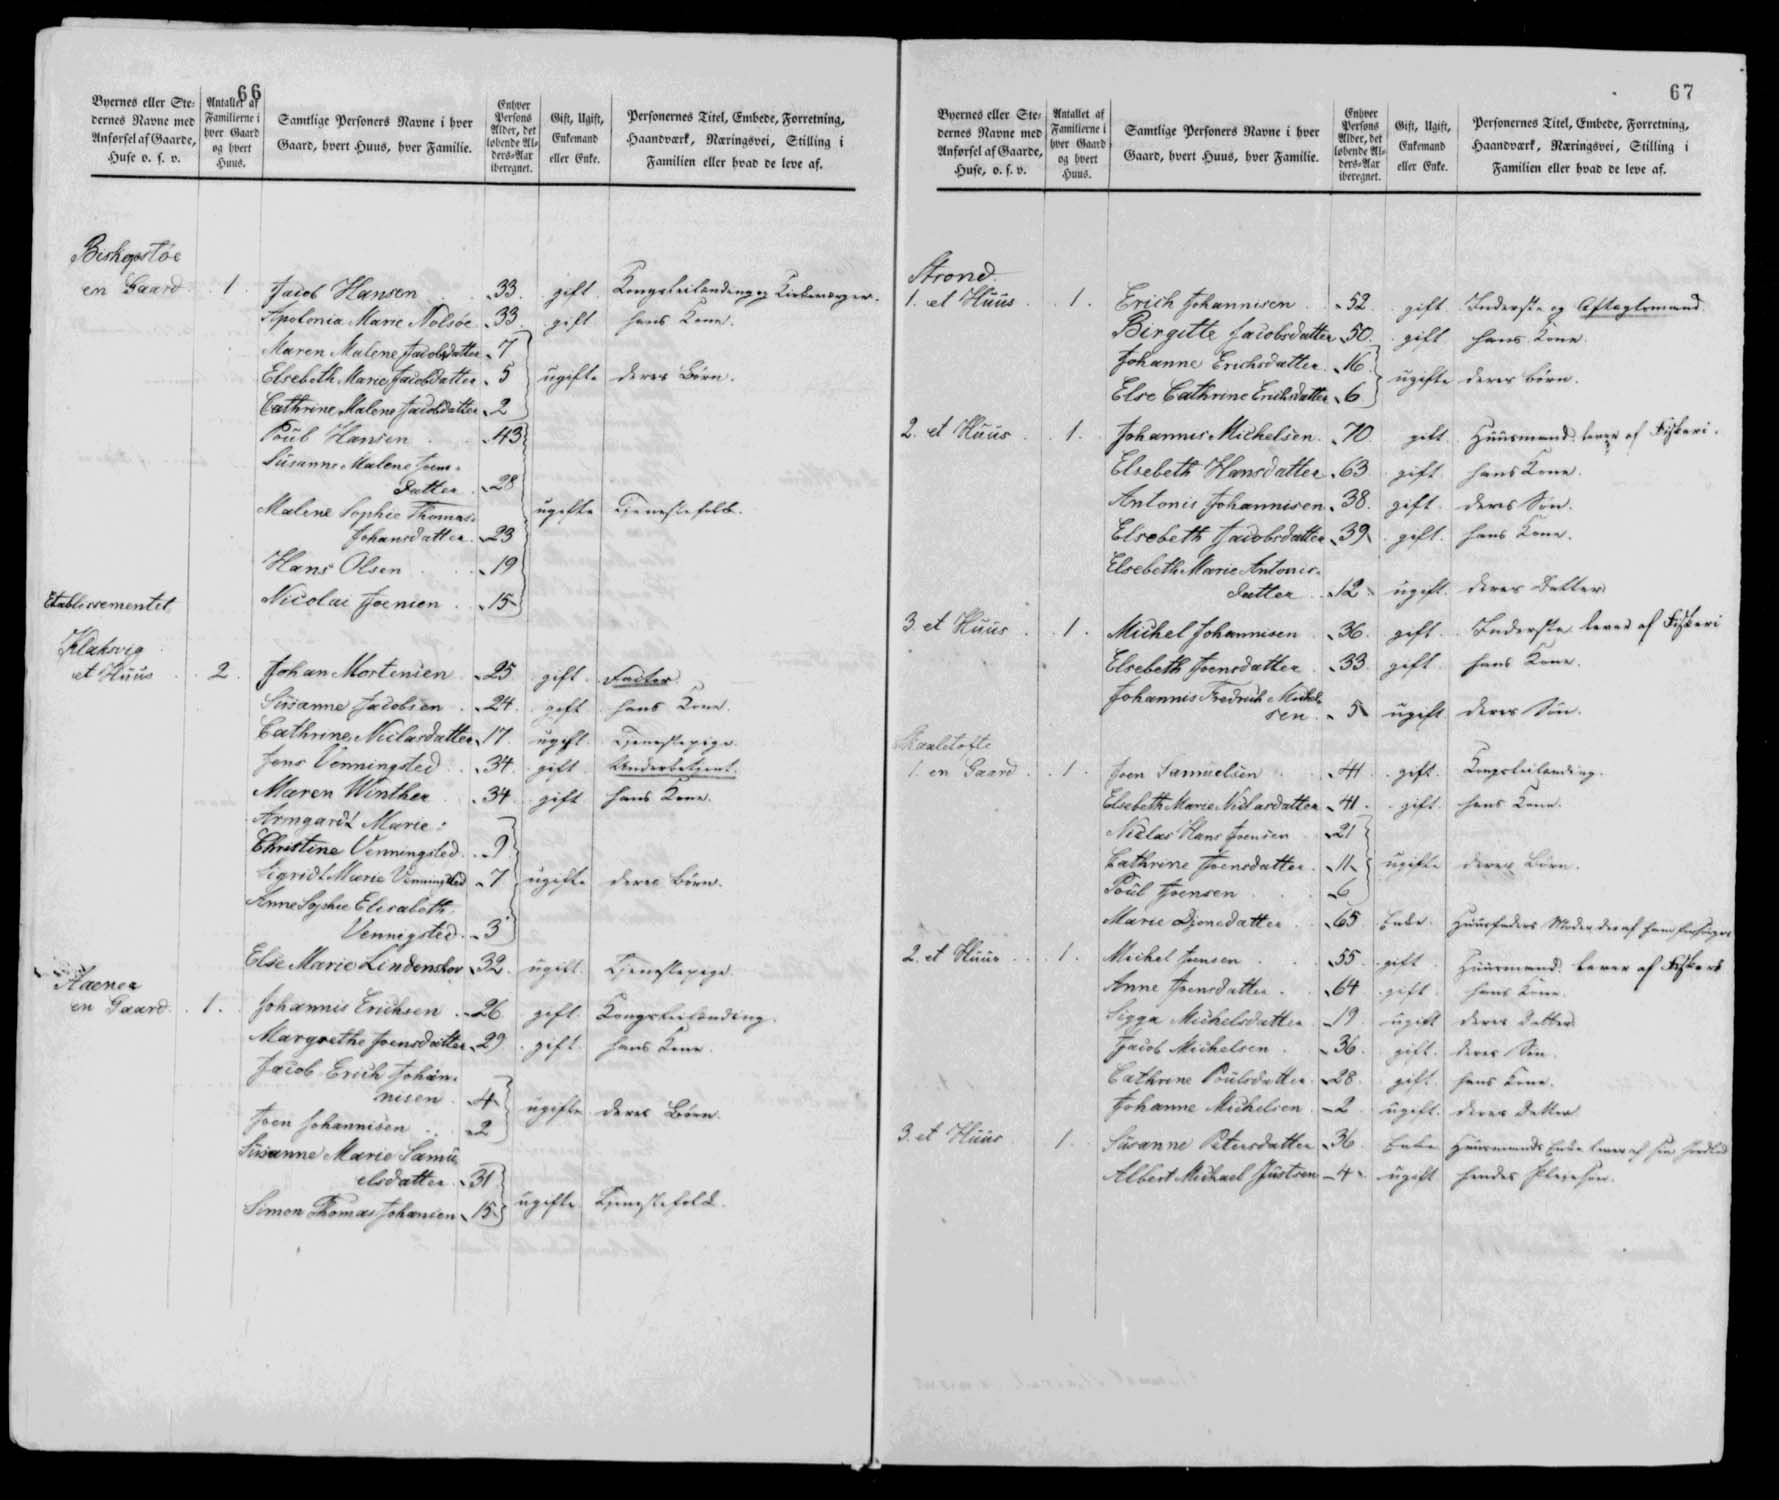 66
Byernes eller Ste-
dernes Navne med
Anførsel af Gaarde,
Huse o. s. v.
Antallet af
Familierne i
hver Gaard
og hvert
Huus.
Samtlige Personers Navne i hver
Gaard, hvert Huus, hver Familie.
Enhver
Persons
Alder, det
løbende Al-
ders-Aar
iberegnet.
Gift, Ugift,
Enkemand
eller Enke.
Personernes Titel, Embede, Forretning,
Haandværk, Næringsvei, Stilling i
Familien eller hvad de leve af.
Biskopstöe
en Gaard 1 Jacob Hansen 33 gift Kongsleilending og Kirkeværger.
Apolonia Marie Nolsöe 33 gift hans Kone.
Maren Malene Jacobsdatter 7
Elsebeth Marie Jacobsdatter 5 ugifte deres Børn.
Cathrine Malene Jacobsdatter 2
Poul Hansen 43
Susanne Malene Joens-
datter 28
Malene Sophie Thomas- ugifte Tjenestefolk.
Johansdatter 23
Hans Olsen 19
Nicolai Joensen 15
Etablissementet
Klaksvig
et Huus 2. Johan Mortensen 25 gift Factor
Susanne Jacobsen 24 gift hans Kone.
Cathrine Niclasdatter 17 ugift Tjenestepige.
Jens Venningsted 34 gift Underbetjent.
Maren Winther 34 gift hans Kone.
Armgardt Marie
Christine Venningsted 9
Sigridt Marie Venningsted 7 ugifte deres Børn.
Anne Sophie Elisabeth
Vennigsted 3
Else Marie Lindenskov 32 ugift Tjenestepige
Aaenes
en Gaard 1. Johannis Erichsen 26 gift Kongsleilending
Margrethe Joensdatter 29 gift hans Kone.
Jacob Erich Johan-
nisen 4 ugifte deres Børn
Joen Johannisen 2
Susanne Marie Samu
elsdatter 31
Simon Thomas Johansen 15 ugifte Tjenestefolk.
67
Byernes eller Ste-
dernes Navne med
Anførsel af Gaarde,
Huse, o. s. v.
Antallet af
Familierne i
hver Gaard
og hvert
Huus.
Samtlige Personers Navne i hver
Gaard, hvert Huus, hver Familie.
Enhver
Persons
Alder, det
løbende Al-
ders-Aar
iberegnet.
Gift, Ugift,
Enkemand
eller Enke.
Personernes Titel, Embede, Forretning,
Haandværk, Næringsvei, Stilling i
Familien eller hvad de leve af.
Strond
1. et Huus 1. Erich Johannisen 52 gift Inderste og Aftægtsmand
Birgitte Jacobsdatter 50 gift hans Kone
Johanne Erichsdatter 16 ugifte deres børn.
Else Cathrine Erichsdatter 6
2. et Huus 1. Johannis Michelsen 70 gift Huusmand lever af Fiskeri.
Elsebeth Hansdatter 63 gift hans Kone.
Antonis Johannisen 38 gift deres Søn.
Elsebeth Jacobsdatter 39 gift hans Kone.
Elsebeth Marie Antonis-
datter 12 ugift deres Datter
3. et Huus 1. Michel Johannisen 36 gift Inderste lever af Fiskeri
Elsebeth Joensdatter 33 gift hans Kone.
Johannis Fredrich Michel
sen 5 ugift deres Søn.
Skaaletofte
1. en Gaard 1 Joen Samuelsen 41 gift Kongsleilending.
Elsebeth Marie Niclasdatter 41 gift hans Kone.
Niclas Hans Joensen 21
Cathrine Joensdatter 11 ugifte deres Børn.
Poul Joensen 6
Marie Djonedatter 65 Enke Huusfaders Moder der af ham forsørges
2. et Huus 1. Michel Joensen 55 gift Huusmand lever af Fiskeri
Anne Joensdatter 64 gift hans Kone
Sigga Michelsdatter 19 ugift deres Datter
Jacob Michelsen 36 gift deres Søn
Cathrine Poulsdatter 28 gift hans Kone.
Johanne Michelsen 2 ugift deres Datter
3. et Huus 1. Susanne Petersdatter 36 Enke Huusmands Enke lever af sin Jordlod
Albert Michael Justsen 4 ugift hendes Pleiesøn.